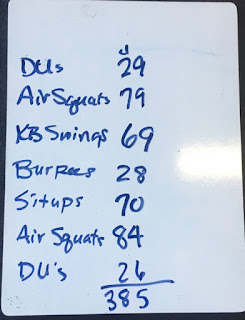 DUs 29
Air Squats 79
KB Swings 69
Burpees 28
Situps 70
Air Squats 84
DU's 26
385